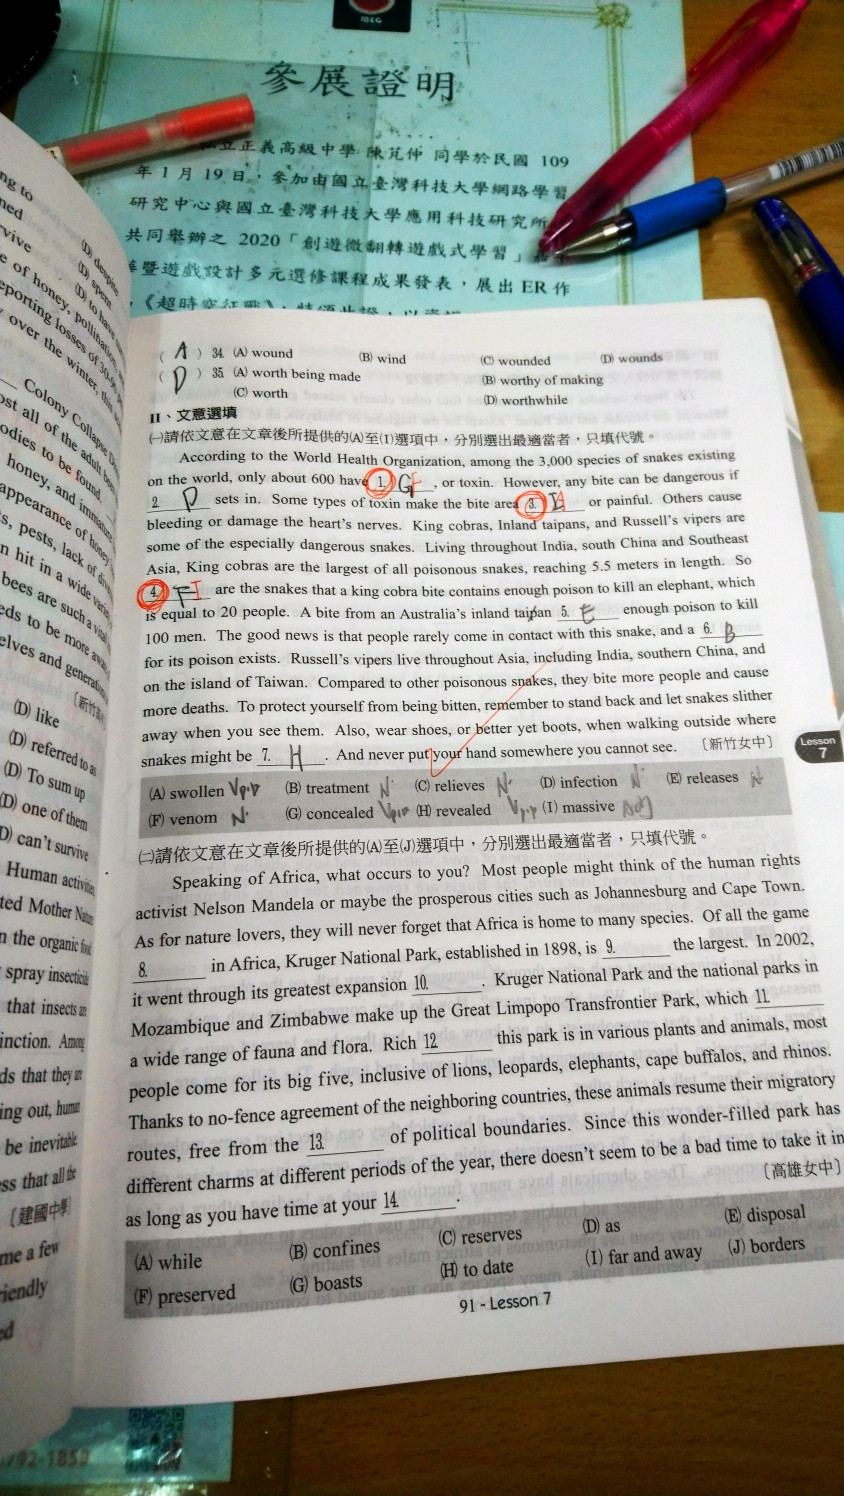 參展證明
私立正義高級中學 陳芃仲 同學於民國 109
年 1 月 19 日，參加由國立臺灣科技大學網路學習
研究中心與國立臺灣科技大學應用科技研究所
共同舉辦之 2020「創遊微翻轉遊戲式學習」
暨遊戲設計多元選修課程成果發表，展出 ER 作
ng to
ned
vive
(D) despite
(D) spent
(D) to have
e of honey, pollination,
eporting losses of 30-
over the winter, this
Colony Collapse
ost all of the adult bees
odies to be found.
honey, and immature
appearance of honey
s, pests, lack of
n hit in a wide
bees are such a vital
eds to be more
elves and generations
(D) like
(D) referred to as
(D) To sum up
(D) one of them
(D) can't survive
Human activities
ted Mother Nature
n the organic food
spray insecticide
that insects are
inction. Among
ds that they are
ing out, human
be inevitable.
ess that all the
〔建國中學〕
me a few
riendly
ed
( A ) 34. (A) wound (B) wind (C) wounded (D) wounds
( D ) 35. (A) worth being made (B) worthy of making
(C) worth (D) worthwhile
II、文意選填
㈠請依文意在文章後所提供的(A)至(I)選項中，分別選出最適當者，只填代號。
According to the World Health Organization, among the 3,000 species of snakes existing
on the world, only about 600 have 1. G F, or toxin. However, any bite can be dangerous if
2. D sets in. Some types of toxin make the bite area 3. I A or painful. Others cause
bleeding or damage the heart's nerves. King cobras, Inland taipans, and Russell's vipers are
some of the especially dangerous snakes. Living throughout India, south China and Southeast
Asia, King cobras are the largest of all poisonous snakes, reaching 5.5 meters in length. So
4. F I are the snakes that a king cobra bite contains enough poison to kill an elephant, which
is equal to 20 people. A bite from an Australia's inland taipan 5. E enough poison to kill
100 men. The good news is that people rarely come in contact with this snake, and a 6. B
for its poison exists. Russell's vipers live throughout Asia, including India, southern China, and
on the island of Taiwan. Compared to other poisonous snakes, they bite more people and cause
more deaths. To protect yourself from being bitten, remember to stand back and let snakes slither
away when you see them. Also, wear shoes, or better yet boots, when walking outside where
snakes might be 7. H. And never put your hand somewhere you cannot see. 〔新竹女中〕
(A) swollen Vp.p (B) treatment N. (C) relieves N. (D) infection N (E) releases N
(F) venom N. (G) concealed Vp.p (H) revealed Vp.p (I) massive adj
Lesson
7
㈡請依文意在文章後所提供的(A)至(J)選項中，分別選出最適當者，只填代號。
Speaking of Africa, what occurs to you? Most people might think of the human rights
activist Nelson Mandela or maybe the prosperous cities such as Johannesburg and Cape Town.
As for nature lovers, they will never forget that Africa is home to many species. Of all the game
8. in Africa, Kruger National Park, established in 1898, is 9. the largest. In 2002,
it went through its greatest expansion 10. . Kruger National Park and the national parks in
Mozambique and Zimbabwe make up the Great Limpopo Transfrontier Park, which 11.
a wide range of fauna and flora. Rich 12. this park is in various plants and animals, most
people come for its big five, inclusive of lions, leopards, elephants, cape buffalos, and rhinos.
Thanks to no-fence agreement of the neighboring countries, these animals resume their migratory
routes, free from the 13. of political boundaries. Since this wonder-filled park has
different charms at different periods of the year, there doesn't seem to be a bad time to take it in
as long as you have time at your 14. . 〔高雄女中〕
(A) while (B) confines (C) reserves (D) as (E) disposal
(F) preserved (G) boasts (H) to date (I) far and away (J) borders
91 - Lesson 7